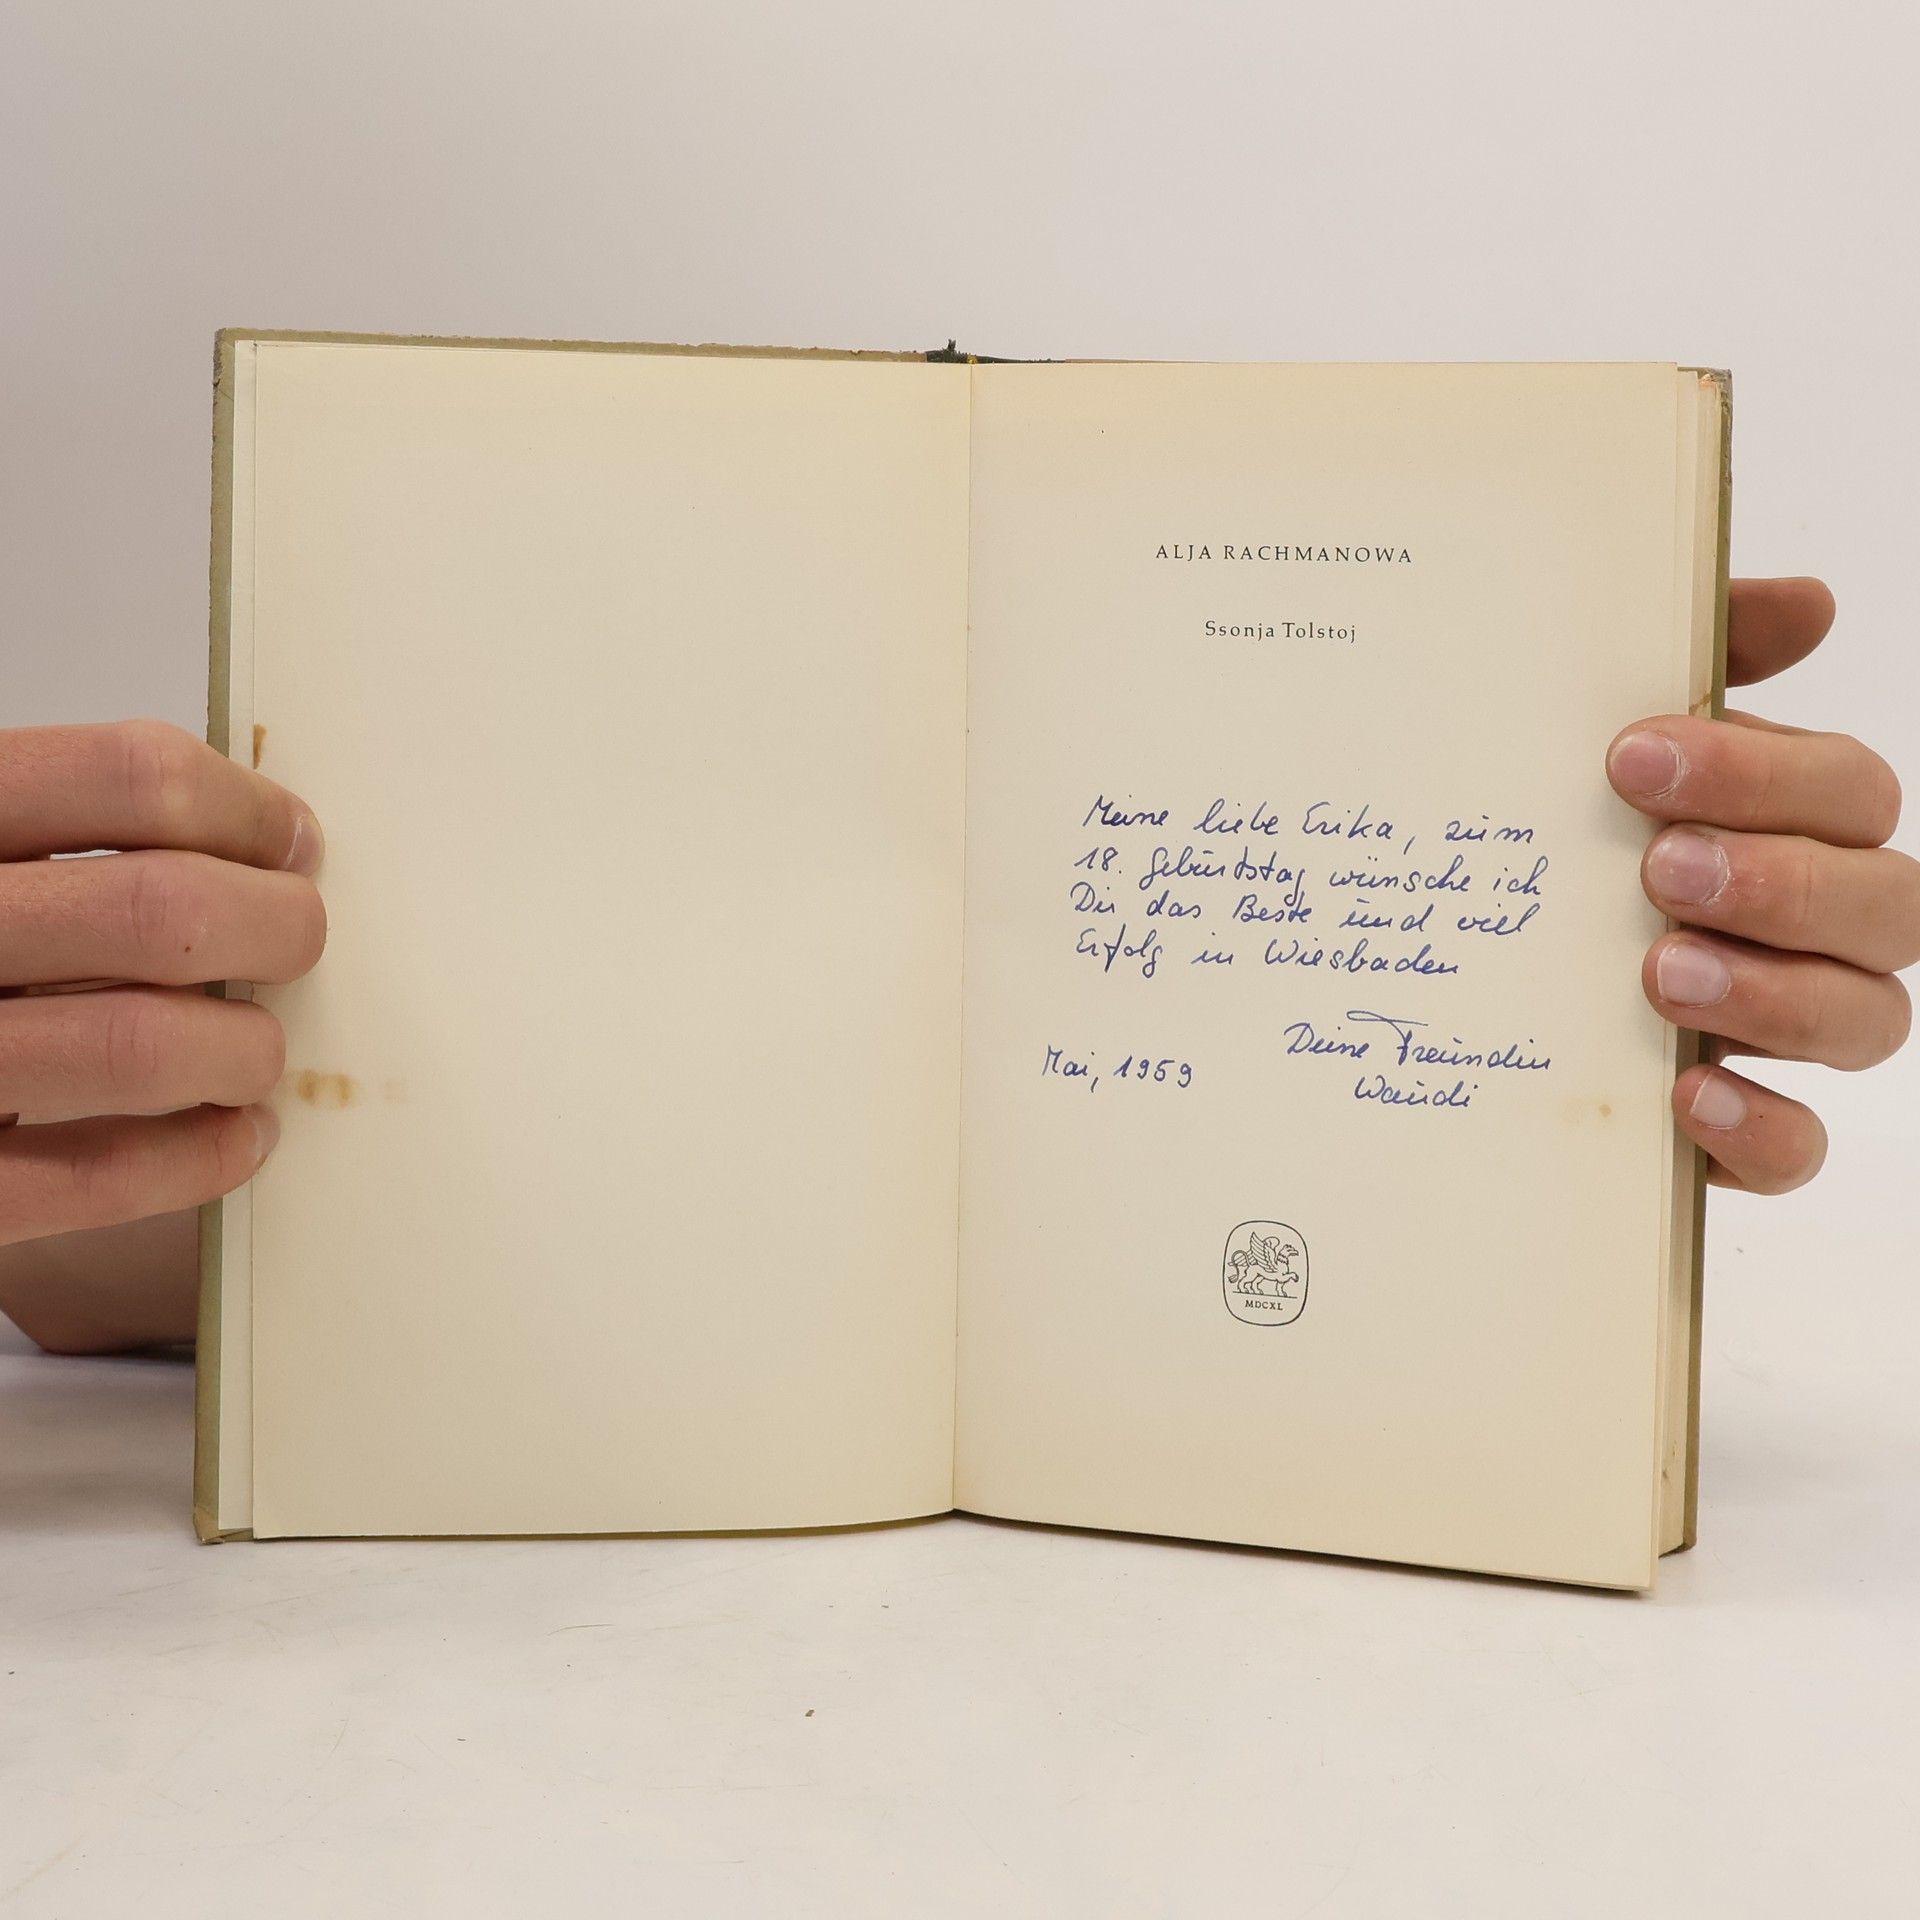 ALJA RACHMANOWA
Ssonja Tolstoj
Meine liebe Erika, zum
18. Geburtstag wünsche ich
Dir das Beste und viel
Erfolg in Wiesbaden
Deine Freundin
Waudi
Mai, 1959
MDCXL